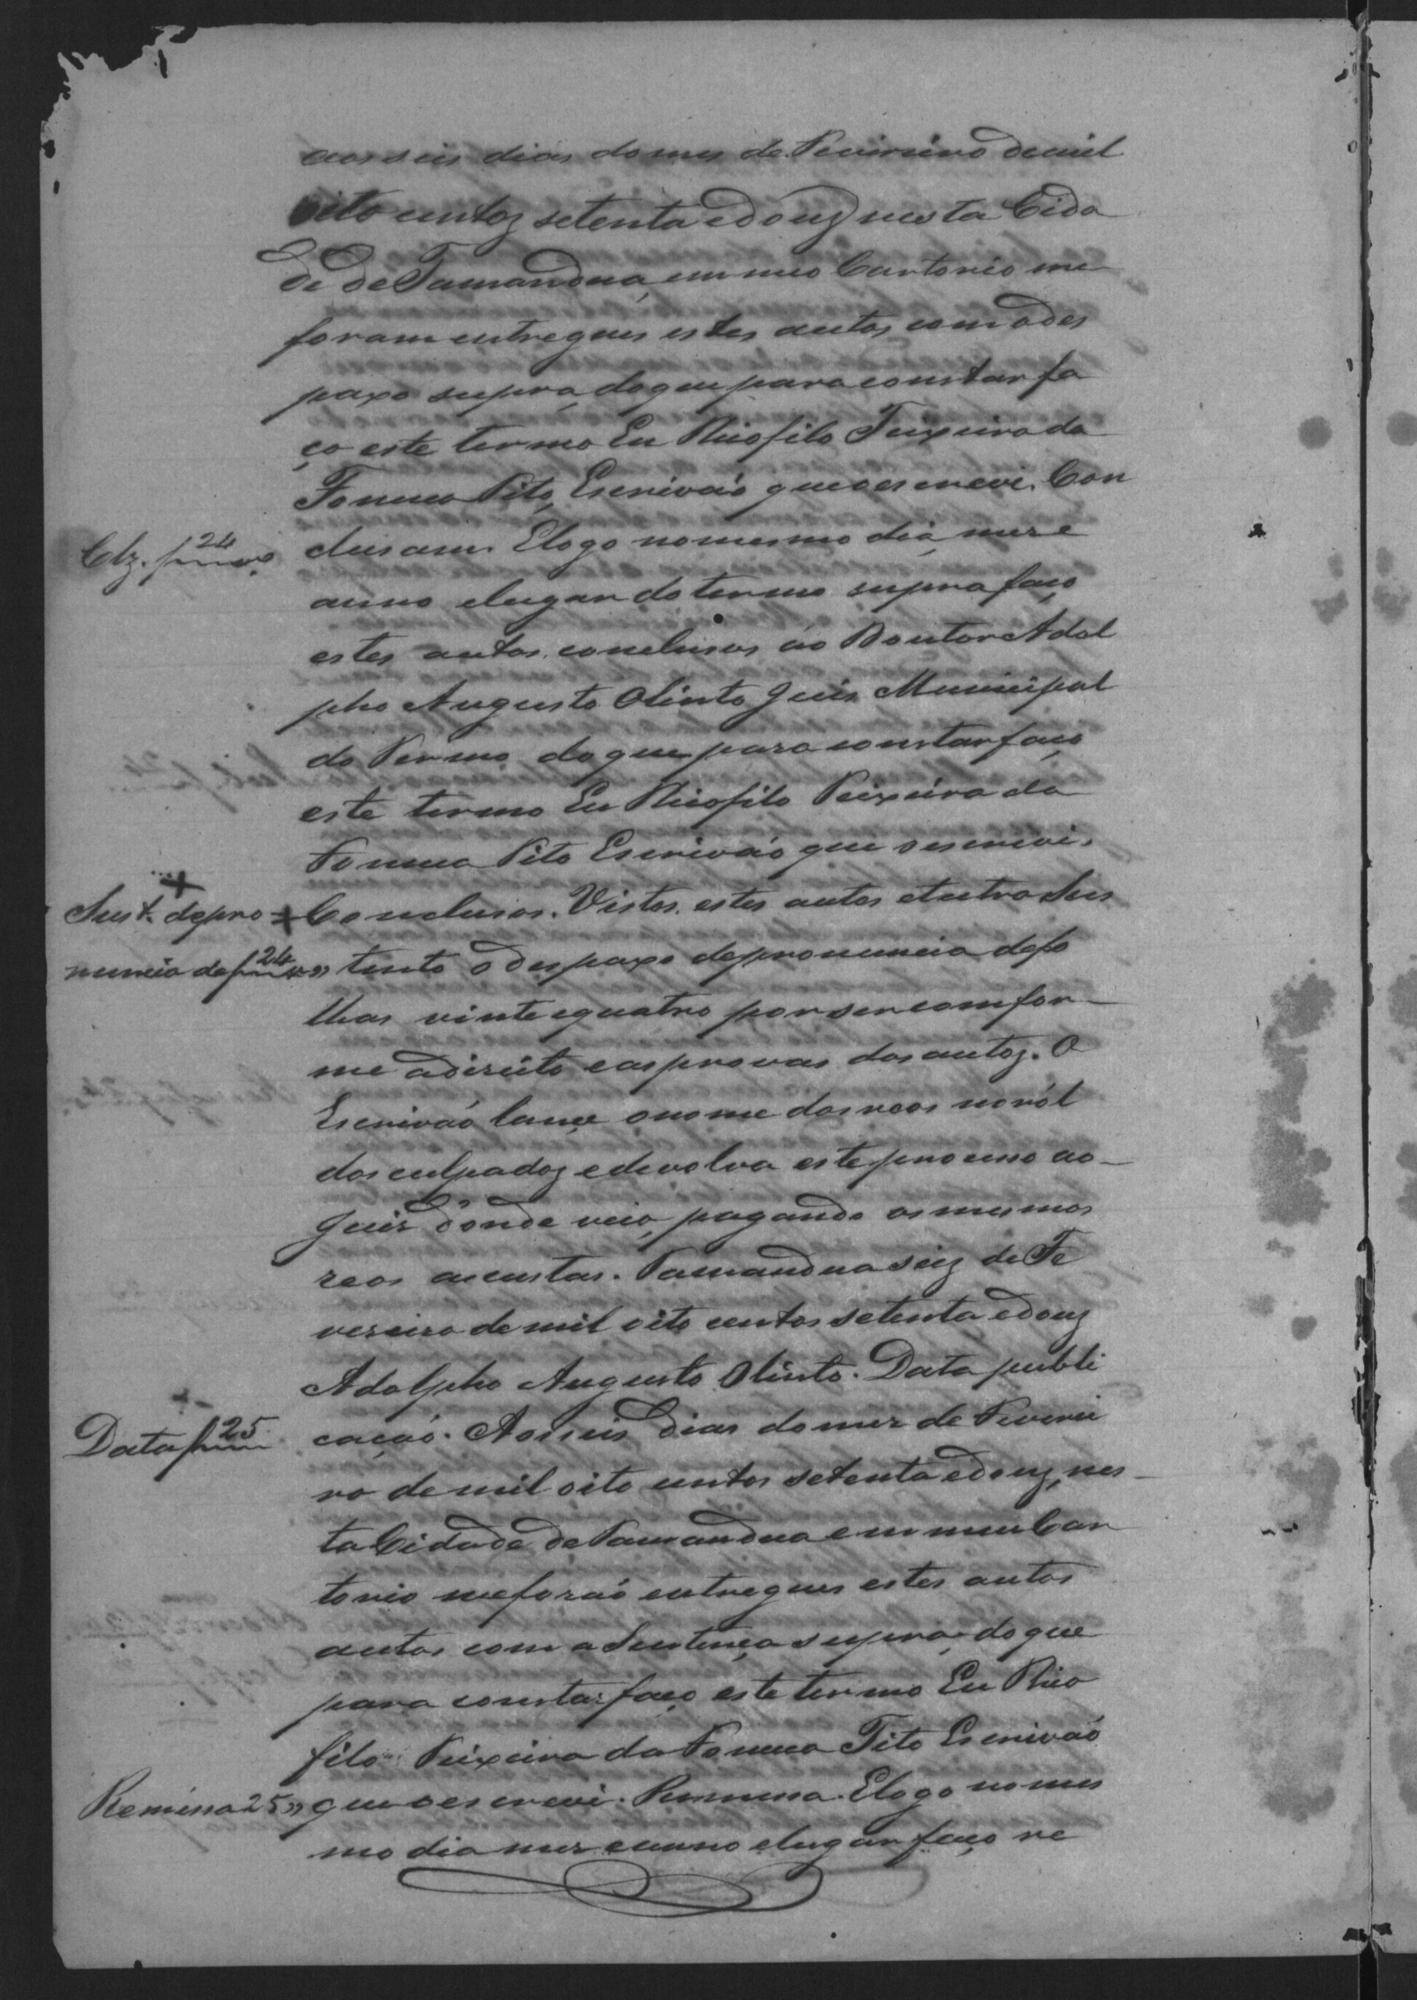 aos seis dias do mes de Fevireiro de mil
oito centos setenta e dous nesta Cida
de de Tamandua, em meo Cartorio me
foram entregues estes autos com o des
paxo supra, do que para constar fa
ço este termo Eu Theofilo Teixeira da
Fonseca Tito, Escrivaõ que o escrevi. Con
Clz. f 24 vo clusam. E logo no mesmo dia, mez e
anno e lugar do termo supra faço
estes autos conclusos ao Doutor Adol
pho Augusto Olinto Juis Municipal
do Termo, do que para constar faço
este termo Eu Theofilo Teixeira da
Fonseca Tito Escrivaõ que o escrevi.
Sust. de pro= Conclusos. Vistos estes autos etcetra Sus
nuncia de f 24 v tento o despaxo de pronuncia de fo
lhas vinte e quatro por ser comfor-
me a direito e as provas dos autos. O
Escrivaõ lance o nome dos reos no ról
dos culpados e devolva este processo ao-
Juis d'onde veio, pagando os mesmos
reos as custas. Tamandua seis de Fe
vereiro de mil oito centos setenta e dous
Adolpho Augusto Olinto. Data publi
Data f 25 caçaõ. Aos seis dias do mez de Feverei
ro de mil oito centos setenta e dous, nes-
ta Cidade de Tamandua em meu Car
torio me foraõ entregues estes autos
autos com a Sentença supra, do que
para constar faço este termo Eu Theo
filo Teixeira da Fonseca Tito Escrivaõ
Remissa 25 v que o escrevi. Remessa. E logo no mes
mo dia mez e anno e lugar faço re